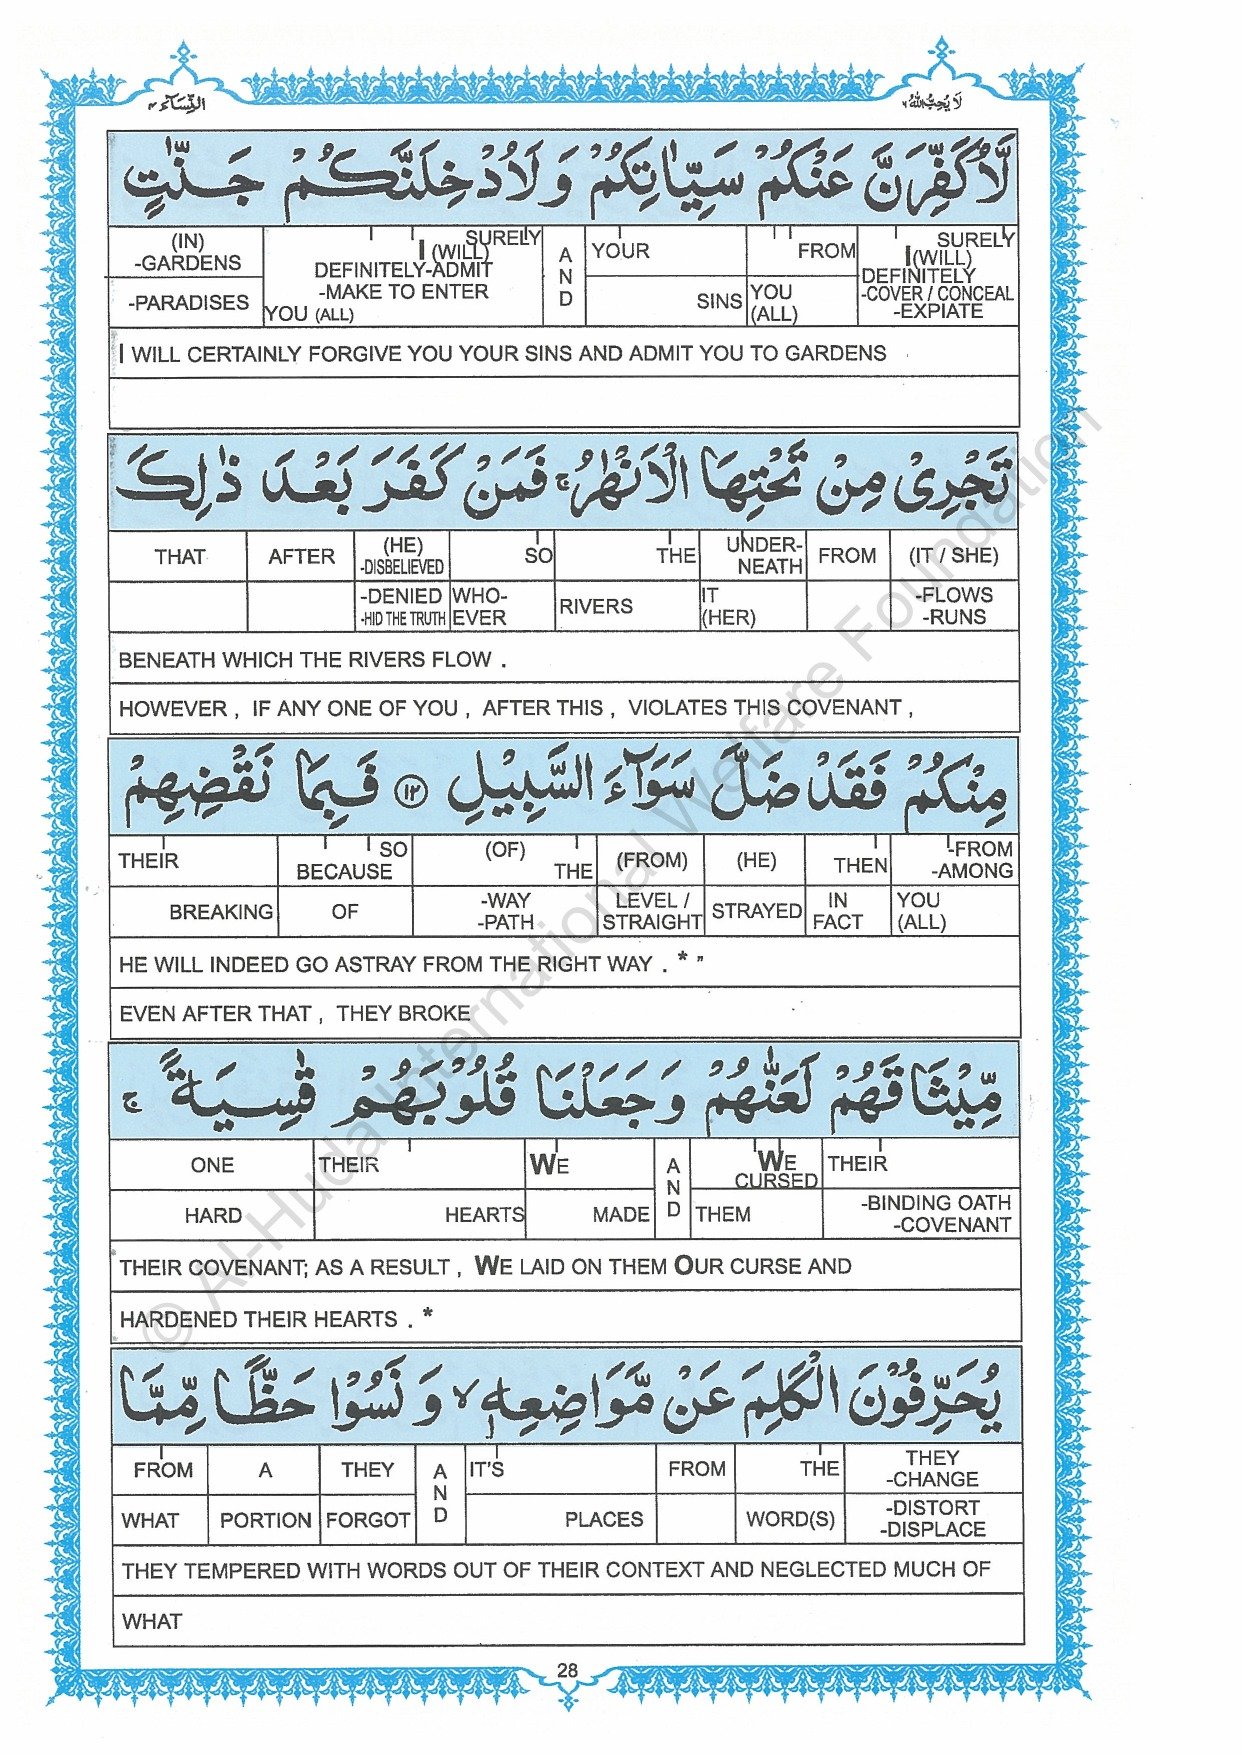 النِّسَآء ٤
لَا يُحِبُّ اللهُ ٦
لَّاُكَفِّرَنَّ عَنْكُمْ سَيِّاٰتِكُمْ وَ لَاُدْخِلَنَّكُمْ جَنّٰتٍ
(IN) -GARDENS -PARADISES
SURELY I (WILL) DEFINITELY-ADMIT -MAKE TO ENTER YOU (ALL)
AND
YOUR SINS
FROM YOU (ALL)
SURELY I(WILL) DEFINITELY -COVER / CONCEAL -EXPIATE
I WILL CERTAINLY FORGIVE YOU YOUR SINS AND ADMIT YOU TO GARDENS
تَجْرِىْ مِنْ تَحْتِهَا الْاَنْهٰرُ ۚ فَمَنْ كَفَرَ بَعْدَ ذٰلِكَ
THAT
AFTER
(HE) -DISBELIEVED -DENIED -HID THE TRUTH
SO WHO-EVER
THE RIVERS
UNDER-NEATH IT (HER)
FROM
(IT / SHE) -FLOWS -RUNS
BENEATH WHICH THE RIVERS FLOW .
HOWEVER , IF ANY ONE OF YOU , AFTER THIS , VIOLATES THIS COVENANT ,
مِنْكُمْ فَقَدْ ضَلَّ سَوَآءَ السَّبِيْلِ ١٢ فَبِمَا نَقْضِهِمْ
THEIR BREAKING
SO BECAUSE OF
(OF) THE -WAY -PATH
(FROM) LEVEL / STRAIGHT
(HE) STRAYED
THEN IN FACT
-FROM -AMONG YOU (ALL)
HE WILL INDEED GO ASTRAY FROM THE RIGHT WAY . * ”
EVEN AFTER THAT , THEY BROKE
مِّيْثَاقَهُمْ لَعَنّٰهُمْ وَ جَعَلْنَا قُلُوْبَهُمْ قٰسِيَةً ۚ
ONE HARD
THEIR HEARTS
WE MADE
AND
WE CURSED THEM
THEIR -BINDING OATH -COVENANT
THEIR COVENANT; AS A RESULT , WE LAID ON THEM OUR CURSE AND
HARDENED THEIR HEARTS . *
يُحَرِّفُوْنَ الْكَلِمَ عَنْ مَّوَاضِعِهٖ ۙ وَ نَسُوْا حَظًّا مِّمَّا
FROM WHAT
A PORTION
THEY FORGOT
AND
IT'S PLACES
FROM
THE WORD(S)
THEY -CHANGE -DISTORT -DISPLACE
THEY TEMPERED WITH WORDS OUT OF THEIR CONTEXT AND NEGLECTED MUCH OF
WHAT
28
© Al-Huda International Welfare Foundation